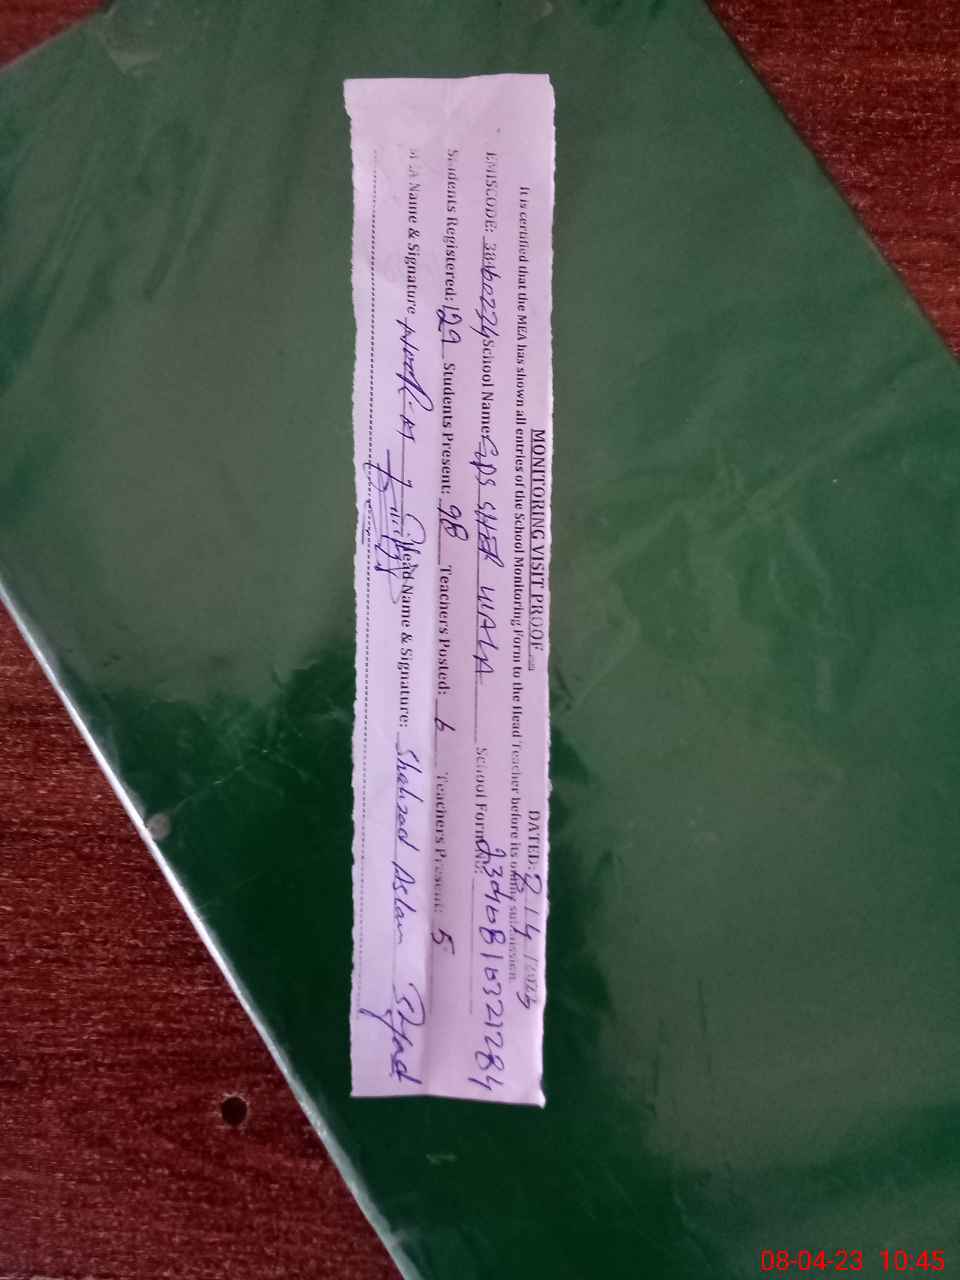 MONITORING VISIT PROOF DATED: 8/4/2023
It is certified that the MEA has shown all entries of the School Monitoring Form to the Head Teacher before its online submission.
EMISCODE: School Name: GPS SHER WALA School Form No:
Students Registered: 129 Students Present: 98 Teachers Posted: 6 Teachers Present: 5
MEA Name & Signature Head Name & Signature: Shahzad Aslam
08-04-23 10:45